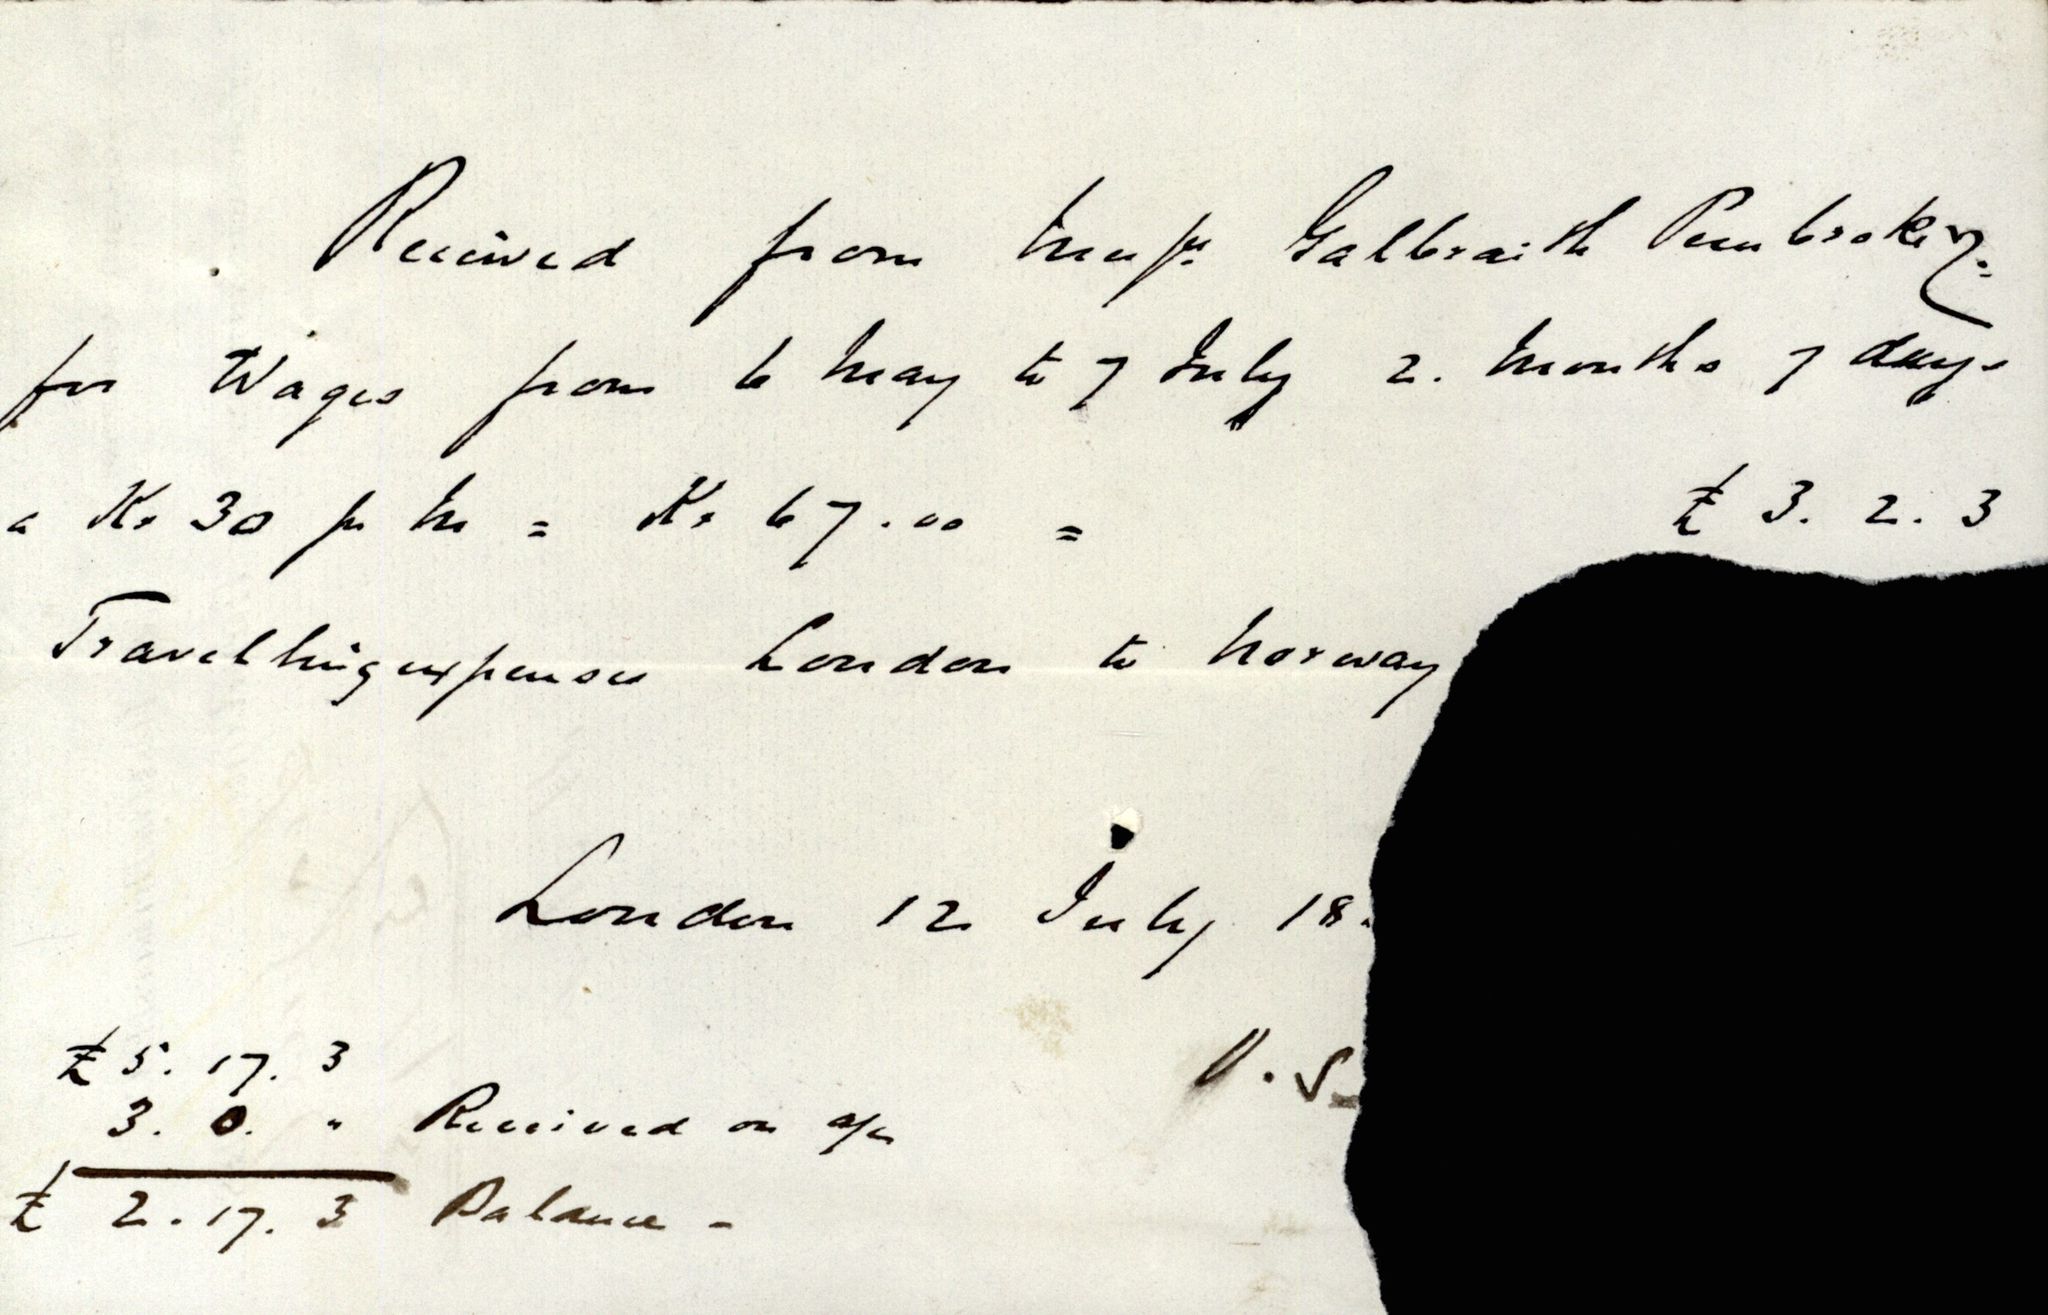 Received from Messrs Galbraith Pembroke
for Wages from 6 May to 7 July 2. Months 7 days
a Kr 30 pr M = Kr 67.00 = £ 3. 2. 3
Travelling expenses London to Norway
London 12 July 18
V. S
£ 5. 17. 3
3. 0. " Received on a/c
£ 2. 17. 3 Balance -